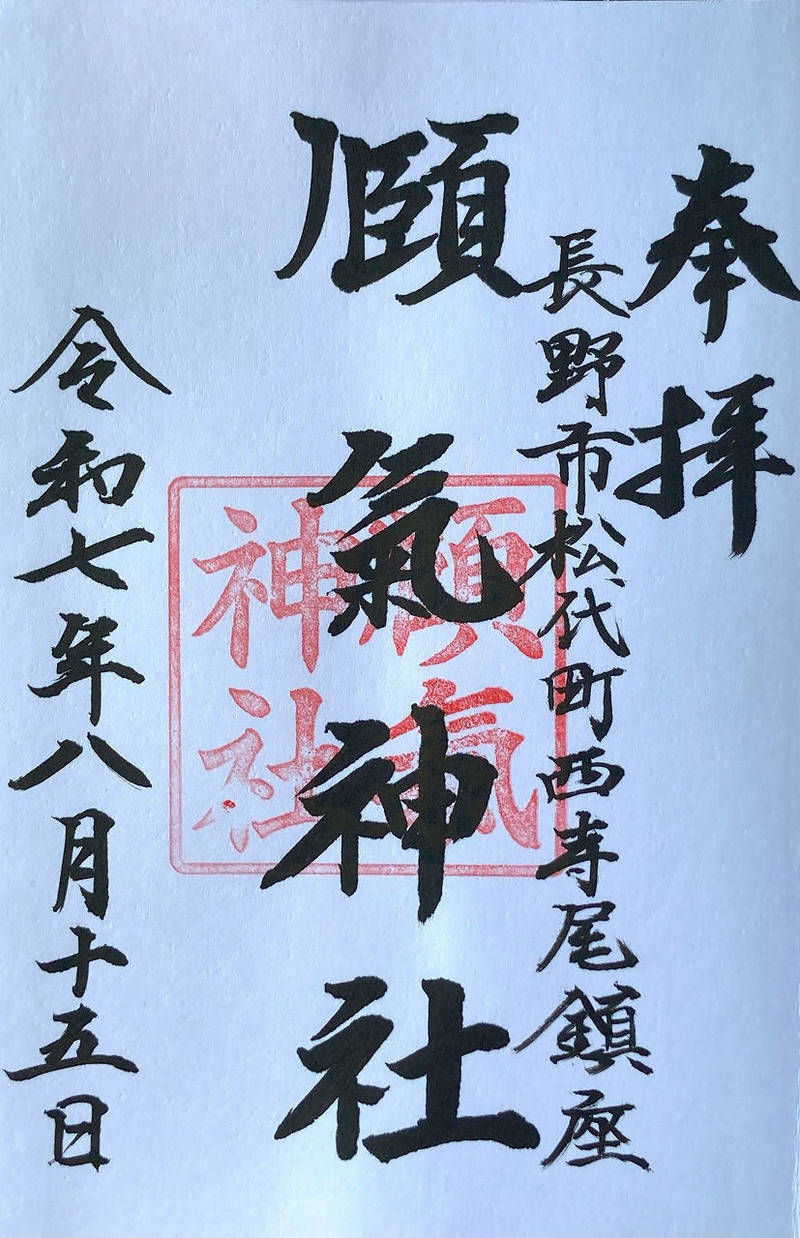 奉拝
長野市松代町西寺尾鎮座
頤氣神社
頤気
神社
令和七年八月十五日